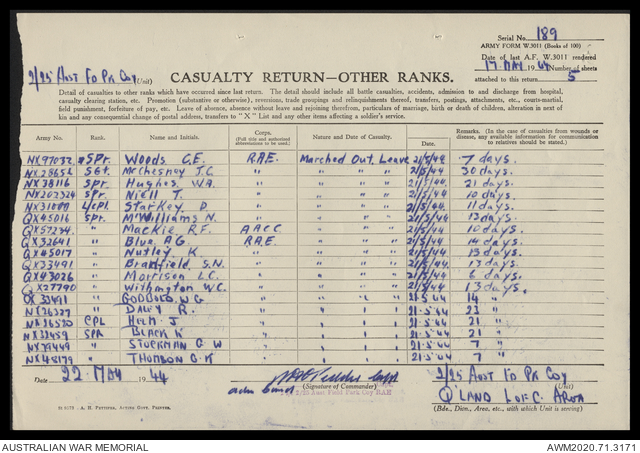 Serial No. 189
ARMY FORM W.3011 (Books of 100)
Date of last A.F. W.3011 rendered
17 MAY 1944 (Number of sheets
attached to this return 5
2/25 Aust Fd Pk Coy (Unit)
CASUALTY RETURN—OTHER RANKS.
Detail of casualties to other ranks which have occurred since last return. The detail should include all battle casualties, accidents, admission to and discharge from hospital,
casualty clearing station, etc. Promotion (substantive or otherwise), reversions, trade groupings and relinquishments thereof, transfers, postings, attachments, etc., courts-martial,
field punishment, forfeiture of pay, etc. Leave of absence, absence without leave and rejoining therefrom, particulars of marriage, birth or death of children, alteration in next of
kin and any consequential change of postal address, transfers to "X" List and any other items affecting a soldier's service.
Army No. Rank. Name and Initials. Corps. (Full title and authorized abbreviations to be used.) Nature and Date of Casualty. Date. Remarks. (In the case of casualties from wounds or disease, any available information for communication to relatives should be stated.)
NX97032 Spr. Woods C.E. R.A.E. Marched Out, Leave 21/5/44 7 days.
NX28652 Sgt. McChesney J.C. " " " " 21/5/44 30 days.
NX38116 Spr. Hughes W.A. " " " " 21/5/44 21 days.
NX202324 Spr. Niell T. " " " " 21/5/44 10 days.
L/Cpl. Starkey D. " " " " 21/5/44 11 days.
QX45016 Spr. McWilliams N. " " " " 21/5/44 13 days.
QX57234 " Mackie R.F. A A C C " " " 21/5/44 10 days.
QX32641 " Blue A.G. R.A.E. " " " 21/5/44 14 days.
QX45017 " Nutley K. " " " " 21/5/44 13 days.
QX33491 " Bradfield S.N. " " " " 21/5/44 13 days.
QX43026 " Morrison L.C. " " " " 21/5/44 6 days.
QX27790 " Withington W.C. " " " " 21/5/44 13 days.
QX33491 " W.G. " " " " 21.5.44 14 "
NX26327 " Daley R. " " " " 21.5.44 23 "
NX36520 CPL J " " " " 21.5.44 21 "
SPR Black K " " " " 21.5.44 21 "
" G W " " " " 21.5.44 7 "
" Thomson G.K " " " " 21.5.44 7 "
Date 22 May 1944
(Signature of Commander)
2/25 Aust Field Park Coy RAE
2/25 Aust Fd Pk Coy (Unit)
Q'LAND L of C. AREA
(Bde., Divn., Area, etc., with which Unit is serving)
A. H. Pettifer, Acting Govt. Printer.
AUSTRALIAN WAR MEMORIAL
AWM2020.71.3171